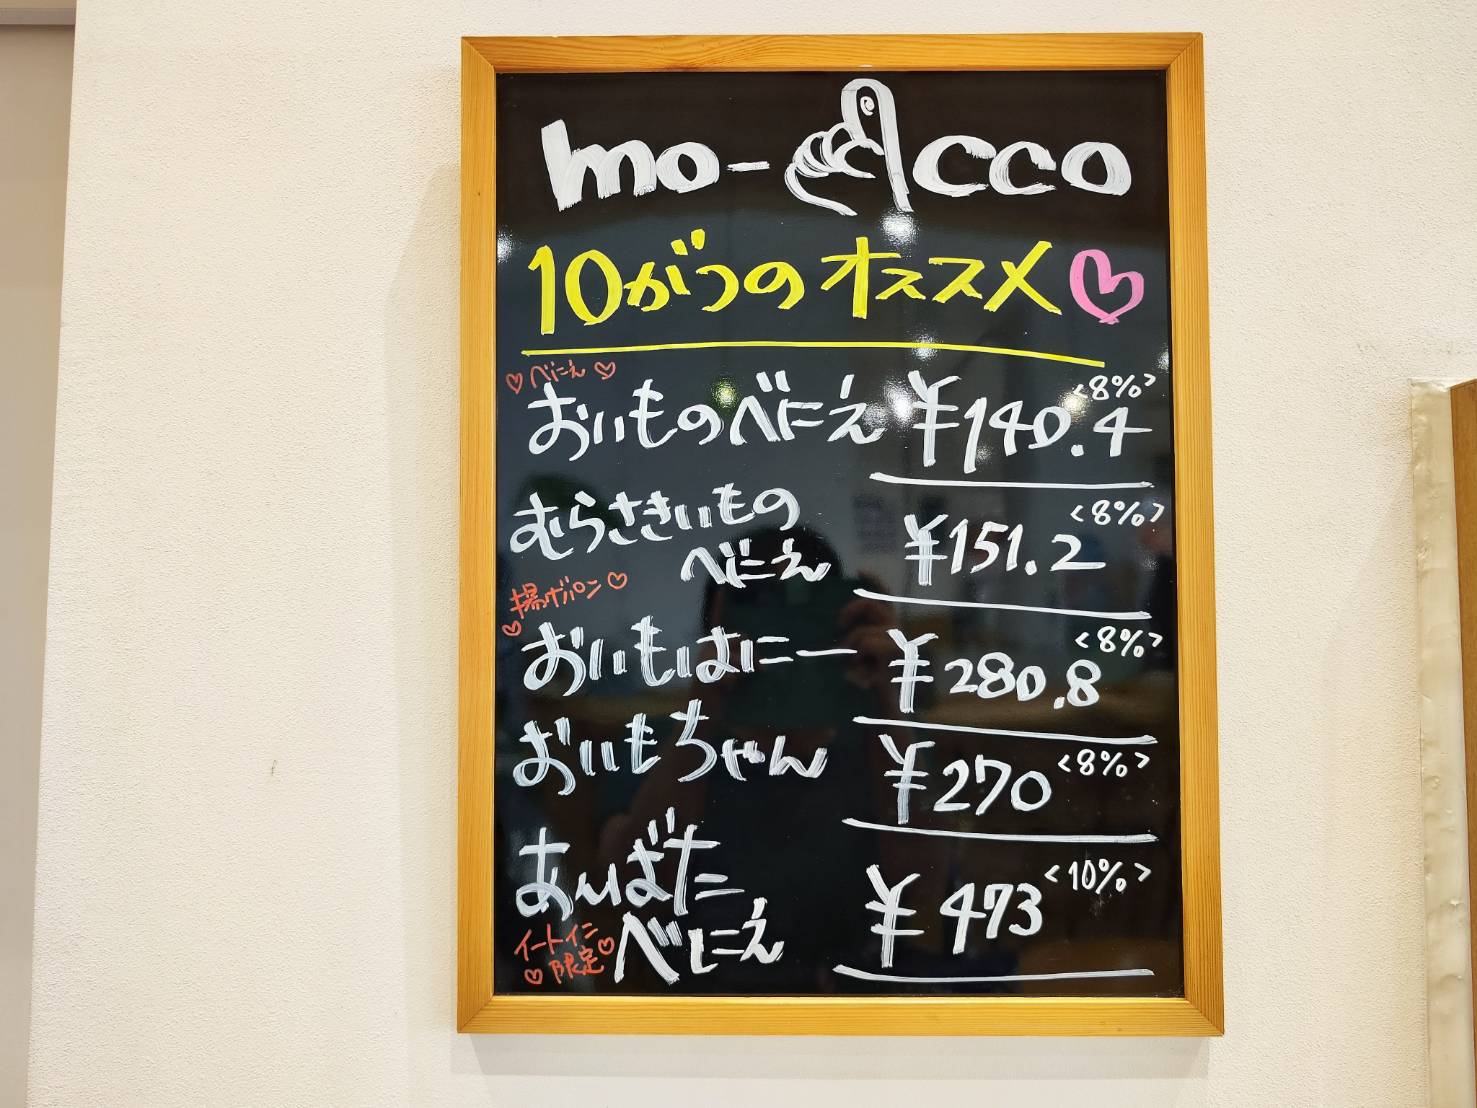 mo-cco
10がつのオススメ
べにえ
おいものべにえ ¥140.4 <8%>
むらさきいもの
べにえ ¥151.2 <8%>
揚げパン
おいもはにー ¥280.8 <8%>
おいもちゃん ¥270 <8%>
あんばた
べにえ ¥473 <10%>
イートイン
限定